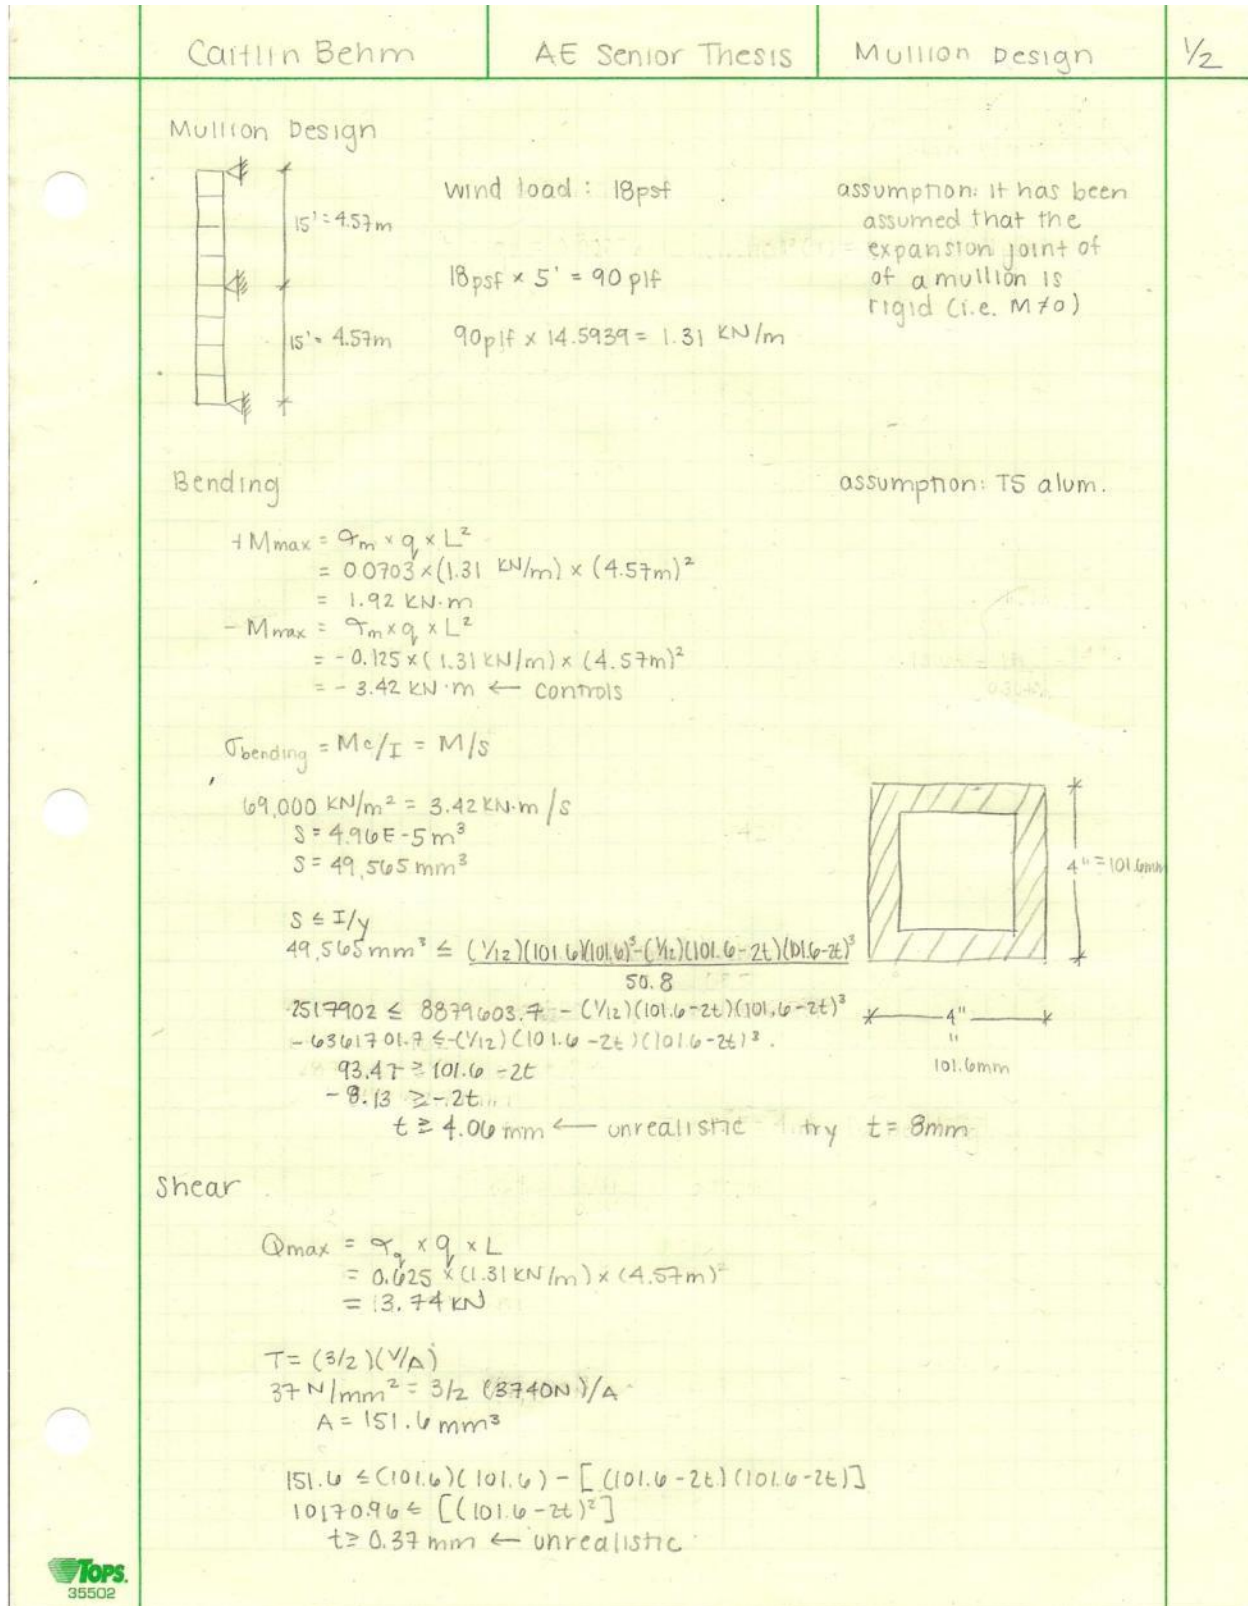 Caitlin Behm AE Senior Thesis Mullion Design 1/2
Mullion Design
15' = 4.57m
15' = 4.57m
wind load : 18psf
18psf × 5' = 90 plf
90plf × 14.5939 = 1.31 KN/m
assumption: it has been
assumed that the
expansion joint of
of a mullion is
rigid (i.e. M≠0)
Bending
assumption: TS alum.
+Mmax = αm × q × L²
= 0.0703 × (1.31 KN/m) × (4.57m)²
= 1.92 KN·m
- Mmax = αm × q × L²
= -0.125 × (1.31 KN/m) × (4.57m)²
= - 3.42 KN·m ← controls
σbending = Mc/I = M/S
69,000 KN/m² = 3.42 KN·m /S
S = 4.96E-5 m³
S = 49,565 mm³
4" = 101.6mm
S ≤ I/y
49,565 mm³ ≤ (1/12)(101.6)(101.6)³-(1/12)(101.6-2t)(101.6-2t)³
50.8
2517902 ≤ 8879603.7 - (1/12)(101.6-2t)(101.6-2t)³
-6361701.7 ≤ -(1/12)(101.6-2t)(101.6-2t)³
93.47 ≥ 101.6 -2t
-8.13 ≥ -2t
t ≥ 4.06 mm ← unrealistic try t = 8mm
4"
"
101.6mm
Shear
Qmax = αq × q × L
= 0.625 × (1.31 KN/m) × (4.57m)²
= 3.74 KN
T = (3/2)(V/A)
37 N/mm² = 3/2 (3740N)/A
A = 151.6 mm³
151.6 ≤ (101.6)(101.6) - [(101.6-2t)(101.6-2t)]
10170.96 ≤ [(101.6-2t)²]
t ≥ 0.37 mm ← unrealistic
TOPS.
35502